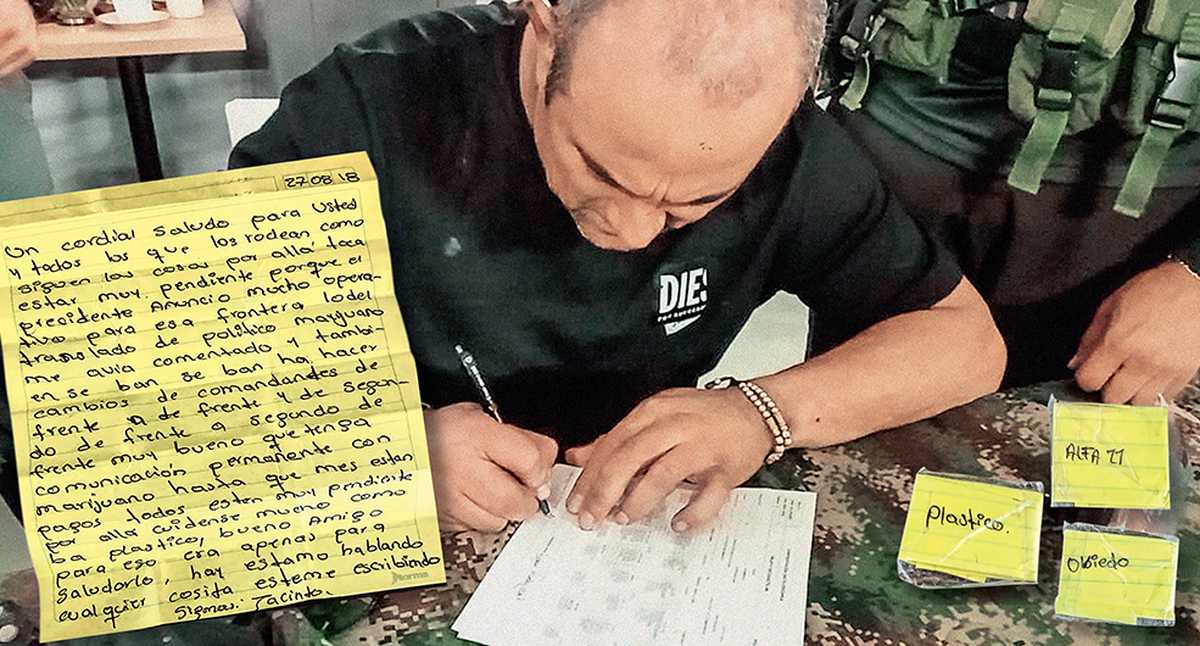 27 08 18
Un cordial saludo para Usted
y todos los que los rodean como
siguen las cosas por alla' toca
estar muy pendiente porque el
presidente Anuncio mucho opera-
tivo para esa frontera lo del
translado de politico marijuano
me avia comentado y tambi-
en se ban se ban ha hacer
cambios de comandantes de
frente a de frente y de segon-
do de frente a segundo de
frente muy bueno que tenga
comunicación permanente con
marijuano hasta que mes estan
pagos todos esten muy pendiente
por alla cuidense mucho como
ba plastico, bueno Amigo
para eso era apenas para
saludorlo, hay estamo hablando
cualquier cosita esteme escribindo
Sigmas. Jacinto.
norma
DIES
ALFA 11
plastico.
obiedo